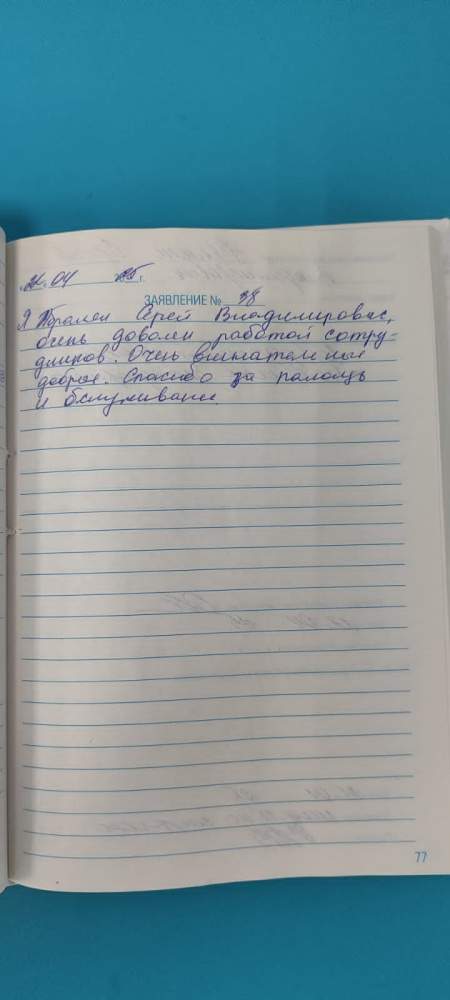 24.04 25 г.
ЗАЯВЛЕНИЕ № 38
Я Сергей Владимирович,
очень доволен работой сотру-
дников. Очень внимательные
добрые. Спасибо за помощь
и обслуживание.
77